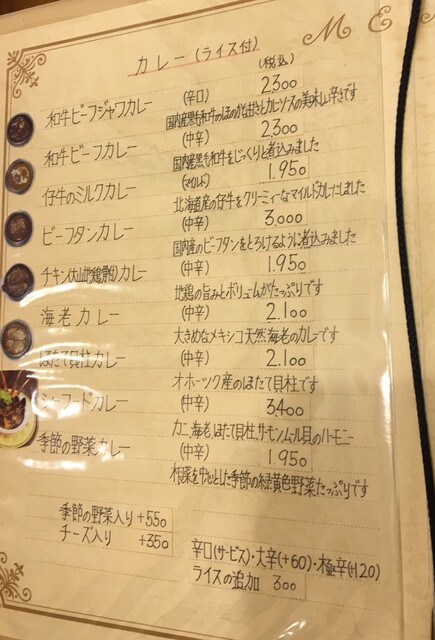 MEN
カレー(ライス付)
(税込)
和牛ビーフジャワカレー (辛口) 2300
国内産黒毛和牛のほのかな甘さとカレーソースの美味しい辛さです
和牛ビーフカレー (中辛) 2300
国内産黒毛和牛をじっくりと煮込みました
仔牛のミルクカレー (マイルド) 1.950
北海道産の仔牛をクリーミィなマイルドカレーにしました
ビーフタンカレー (中辛) 3.000
国内産のビーフタンをとろけるように煮込みました
チキン(大山地鶏骨付)カレー (中辛) 1.950
地鶏の旨みとボリュームがたっぷりです
海老カレー (中辛) 2.100
大きめなメキシコ天然海老のカレーです
ほたて貝柱カレー (中辛) 2.100
オホーツク産のほたて貝柱です
シーフードカレー (中辛) 3.400
カニ、海老、ほたて貝柱、サーモン、ムール貝のハーモニー
季節の野菜カレー (中辛) 1.950
根菜を中心とした季節の緑黄色野菜たっぷりです
季節の野菜入り +550
チーズ入り +350
辛口(サービス)・大辛(+60)・極辛(+120)
ライスの追加 300